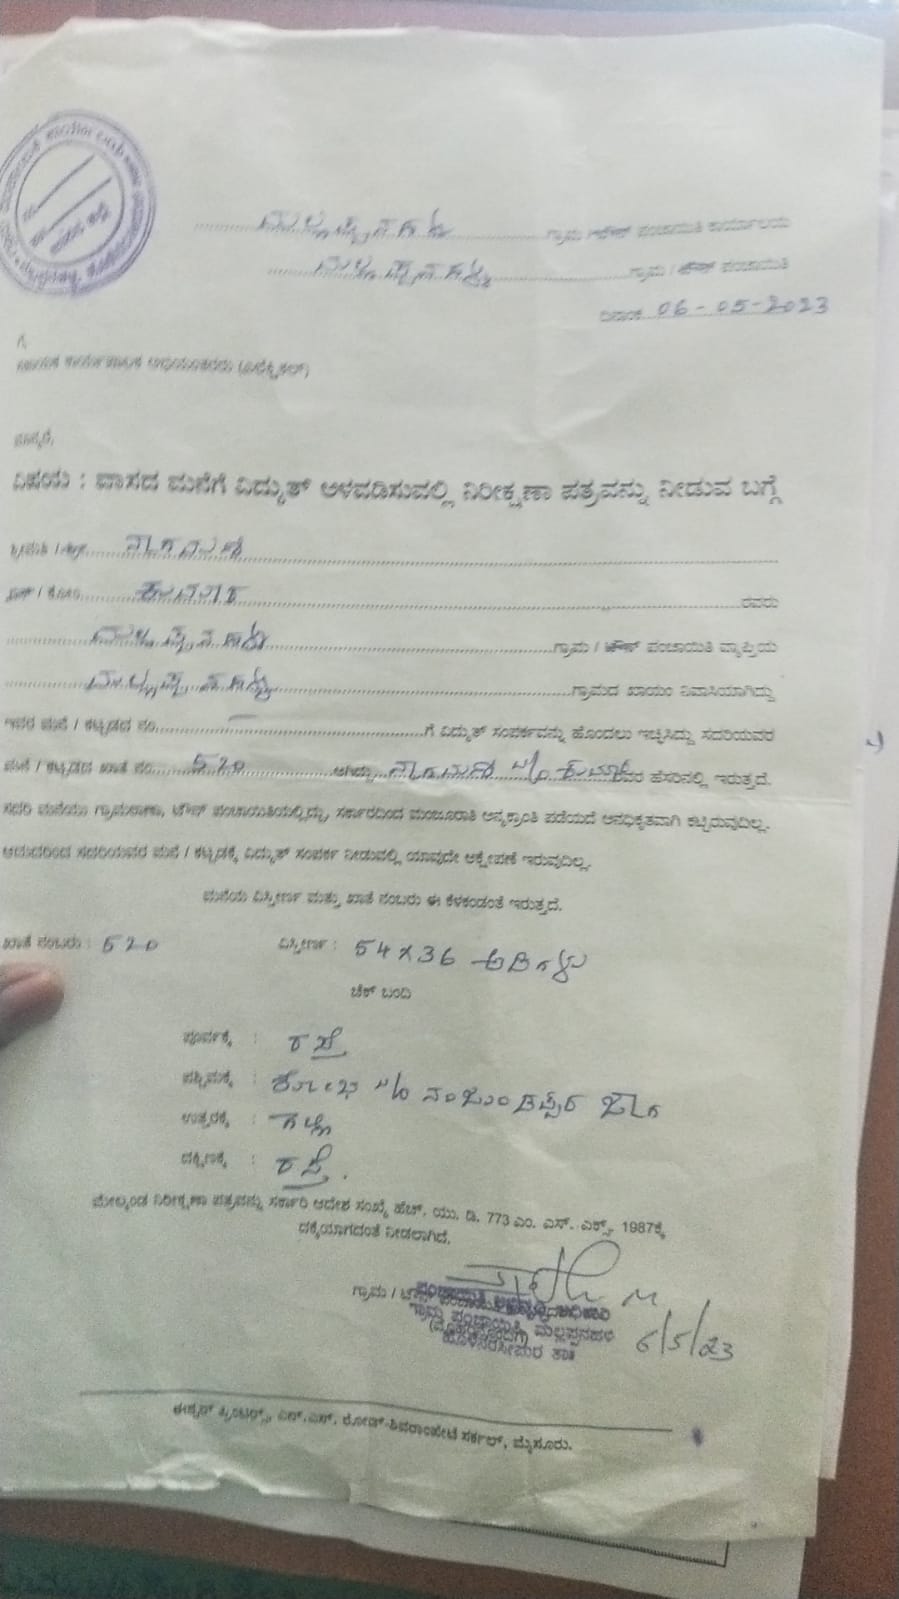 ಮಲ್ಲಪ್ಪನಹಳ್ಳಿ ಗ್ರಾಮ / ಟೌನ್ ಪಂಚಾಯಿತಿ ಕಾರ್ಯಾಲಯ
ಮಲ್ಲಪ್ಪನಹಳ್ಳಿ ಗ್ರಾಮ / ಟೌನ್ ಪಂಚಾಯಿತಿ
ದಿನಾಂಕ 06-05-2023
ಗೆ,
ಸಹಾಯಕ ಕಾರ್ಯಪಾಲಕ ಅಭಿಯಂತರರು (ಎಲೆಕ್ಟ್ರಿಕಲ್)
ಮಾನ್ಯರೆ,
ವಿಷಯ : ವಾಸದ ಮನೆಗೆ ವಿದ್ಯುತ್ ಅಳವಡಿಸುವಲ್ಲಿ ನಿರೀಕ್ಷಣಾ ಪತ್ರವನ್ನು ನೀಡುವ ಬಗ್ಗೆ
ಶ್ರೀಮತಿ / ಶ್ರೀ ನಾಗಮಣಿ
ಬಿನ್ / ಕೋಂ ಕುಮಾರ ರವರು
ಮಲ್ಲಪ್ಪನಹಳ್ಳಿ ಗ್ರಾಮ / ಟೌನ್ ಪಂಚಾಯಿತಿ ವ್ಯಾಪ್ತಿಯ
ಮಲ್ಲಪ್ಪನಹಳ್ಳಿ ಗ್ರಾಮದ ಖಾಯಂ ನಿವಾಸಿಯಾಗಿದ್ದು
ಇವರ ಮನೆ / ಕಟ್ಟಡದ ನಂ. ಗೆ ವಿದ್ಯುತ್ ಸಂಪರ್ಕವನ್ನು ಹೊಂದಲು ಇಚ್ಛಿಸಿದ್ದು ಸದರಿಯವರ
ಮನೆ / ಕಟ್ಟಡದ ಖಾತೆ ನಂ. 520 ಆಗಿದ್ದು ನಾಗಮಣಿ w/o ಕುಮಾರ ರವರ ಹೆಸರಿನಲ್ಲಿ ಇರುತ್ತದೆ.
ಸದರಿ ಮನೆಯು ಗ್ರಾಮಠಾಣಾ, ಟೌನ್ ಪಂಚಾಯಿತಿಯಲ್ಲಿದ್ದು, ಸರ್ಕಾರದಿಂದ ಮಂಜೂರಾತಿ ಅನ್ಯಕ್ರಾಂತಿ ಪಡೆಯದೆ ಅನಧಿಕೃತವಾಗಿ ಕಟ್ಟಿರುವುದಿಲ್ಲ.
ಆದುದರಿಂದ ಸದರಿಯವರ ಮನೆ / ಕಟ್ಟಡಕ್ಕೆ ವಿದ್ಯುತ್ ಸಂಪರ್ಕ ನೀಡುವಲ್ಲಿ ಯಾವುದೇ ಆಕ್ಷೇಪಣೆ ಇರುವುದಿಲ್ಲ.
ಮನೆಯ ವಿಸ್ತೀರ್ಣ ಮತ್ತು ಖಾತೆ ನಂಬರು ಈ ಕೆಳಕಂಡಂತೆ ಇರುತ್ತದೆ.
ಖಾತೆ ನಂಬರು : 520 ವಿಸ್ತೀರ್ಣ : 54x36 ಅಡಿಗಳು
ಚೆಕ್ ಬಂದಿ
ಪೂರ್ವಕ್ಕೆ : ರಸ್ತೆ
ಪಶ್ಚಿಮಕ್ಕೆ : ಶೋಭ w/o ನಂಜುಂಡಪ್ಪರ ಜಾಗ
ಉತ್ತರಕ್ಕೆ : ಗಲ್ಲಿ
ದಕ್ಷಿಣಕ್ಕೆ : ರಸ್ತೆ.
ಮೇಲ್ಕಂಡ ನಿರೀಕ್ಷಣಾ ಪತ್ರವನ್ನು ಸರ್ಕಾರಿ ಆದೇಶ ಸಂಖ್ಯೆ ಹೆಚ್. ಯು. ಡಿ. 773 ಎಂ. ಎಸ್. ಎಕ್ಸ್. 1987ಕ್ಕೆ
ದಕ್ಕೆಯಾಗದಂತೆ ನೀಡಲಾಗಿದೆ.
ಪಂಚಾಯಿತಿ ಅಭಿವೃದ್ಧಿ ಅಧಿಕಾರಿ
ಗ್ರಾಮ ಪಂಚಾಯಿತಿ, ಮಲ್ಲಪ್ಪನಹಳ್ಳಿ
ಹೊಳೆನರಸೀಪುರ ತಾ॥
6/5/23
ಈಶ್ವರ್ ಪ್ರಿಂಟರ್ಸ್, ಎನ್.ಎಸ್. ರೋಡ್-ಶಿವರಾಂಪೇಟೆ ಸರ್ಕಲ್, ಮೈಸೂರು.